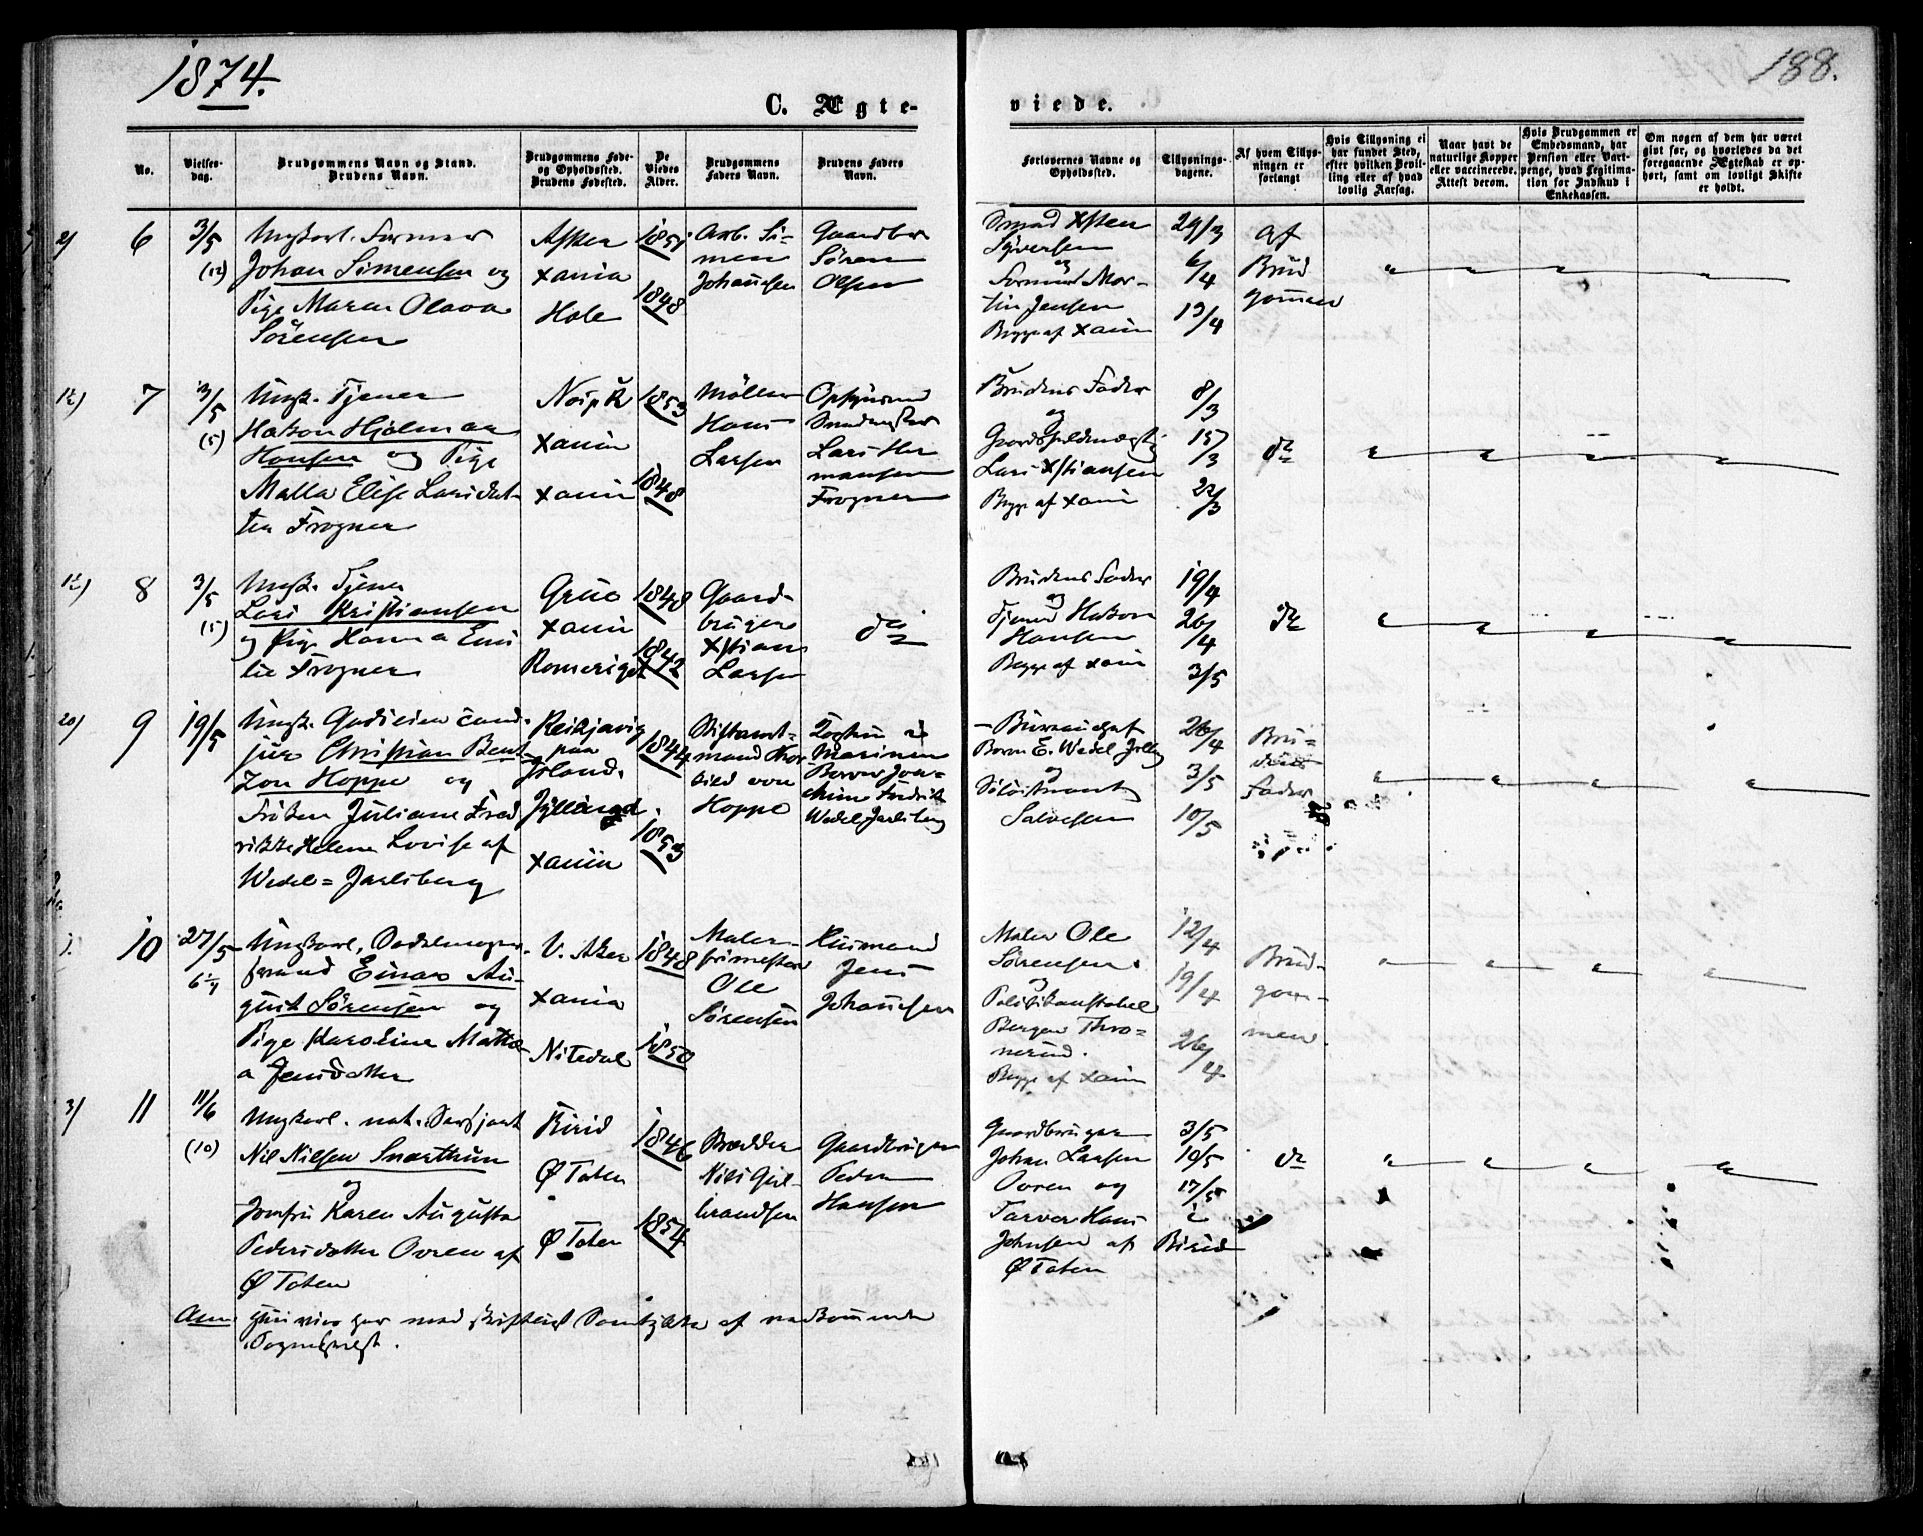 1874.
188.
C. Ægte-
viede.
No.
Vielses-
dag.
Brudgommens Navn og Stand.
Brudens Navn.
Brudgommens Føde-
og Opholdssted.
Brudens Fødested.
De
Viedes
Alder.
Brudgommens
Faders Navn.
Brudens Faders
Navn.
Forlovernes Navne og
Opholdssted.
Tillysnings-
dagene.
Af hvem Tillys-
ningen er
forlangt
Hvis Tillysning ei
har fundet Sted,
efter hvilken Bevil-
ling eller af hvad
lovlig Aarsag.
Naar havt de
naturlige Kopper
eller vaccinerede.
Attest derom.
Hvis Brudgommen er
Embedsmand, har
Pension eller Vart-
penge, hvad Legitima-
tion for Indskud i
Enkekassen.
Om nogen af dem har været
givt før, og hvorledes da det
foregaaende Ægteskab er op-
hørt, samt om lovligt Skifte
er holdt.
2) 6 3/5 (12)
Ungkarl. Former
Johan Simensen og
Pige Maren Olava
Sörensen
Asker
Xania
Hole
1851
1848
Arb. Si-
men
Johansen
Gaardbr
Sören
Olsen
Xsten
Syversen
og
Former Mor-
tin Jensen
Begge af Xania
29/3
6/4
13/4
af
Brud
gommen
12) 7 3/5 (5)
Ungk. Tjener
Hakon Hjalmar
Hansen og Pige
Malla Elise Larsdat-
ter Frogner
Xania
Xania
1853
1848
Möller
Hans
Larsen
Opsynsmd
Lars Her
mansen
Frogner
Brudens Fader
og
Gaardsfuldmægtig
Lars Xstiansen
Begge af Xania
8/3
15/3
22/3
do
12) 8 3/5 (5)
Ungk. Tjener
Lars Kristiansen
og Pige Hanna Emi
lie Frogner
Grue
Xania
Romeriget
1848
1842
Gaard-
bruger
Xstian
Larsen
do
Brudens Fader
og
Tjener Hakon
Hansen
Begge af Xania
19/4
26/4
3/5
do
20) 9 19/5
Ungk. Godseier cand.
jur Christian Bent
zon Hoppe og
Fröken Juliane Fred
rikke Helene Lovise af
Wedel=Jarlsberg
Reikjavig
paa
Island.
Jylland.
Xania
1844
1853
Stiftamt-
mand Thor
kied von
Hoppe
Marinen
Baron Joa-
chim Fredrik
Wedel Jarlsberg
Bureauchef
Baron E. Wedel Jarlsb
og
Salvesen
26/4
3/5
10/5
Bru=
dens
Fader
1. 10 27/5
Ungkarl, Sadelmager
svend Einar Au-
gust Sörensen og
Pige Karoline Mathe
a Jensdatter
V. Aker
Xania
Nitedal
1848
1850
Maler-
Ole
Sörensen
Husmand
Jens
Johansen
Maler Ole
Sörensen
og
Politikonstabel
Bergen Thro=
nerud.
Begge af Xania
12/4
19/4
26/4
Brud-
gom-
men
3) 11 11/6 (10)
Ungkarl. nat. Sersjant
Nils Nilsen Snarthum
og
Jomfru Karen Augusta
Pedersdatter Ovren af
Ø Toten
Birid
Ø Toten
Ø Toten
1846
1854
Snedker
Nils Gul-
brandsen
Gaardbruger
Peder
Hansen
Gaardbruger
Johan Larsen
Ovren og
Farver Hans
Johnsen af
Ø Toten
3/5
10/5
17/5
i
Birid
do
Anm med skriftligt Samtykke af vedkommende
Sogneprest.